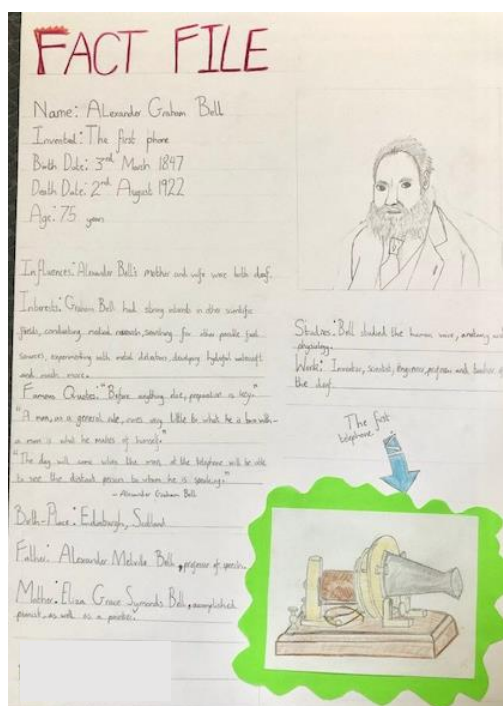 FACT FILE
Name: Alexander Graham Bell
Invented: The first phone
Birth Date: 3rd March 1847
Death Date: 2nd August 1922
Age: 75 years
Influences: Alexander Bell's mother and wife were both deaf.
Interests: Graham Bell had strong interests in other scientific
fields, conducting medical research, searching for other possible fuel
sources, experimenting with metal detectors, developing hydrofoil watercraft
and much more.
Famous Quotes: "Before anything else, preparation is key."
"A man, as a general rule, owes very little to what he is born with -
a man is what he makes of himself."
"The day will come when the man at the telephone will be able
to see the distant person to whom he is speaking."
- Alexander Graham Bell
Birth-Place: Edinburgh, Scotland
Father: Alexander Melville Bell, professor of speech.
Mother: Eliza Grace Symonds Bell, accomplished
pianist, as well as a painter.
Studies: Bell studied the human voice, anatomy and
physiology.
Work: Inventor, scientist, engineer, professor and teacher of
the deaf
The first
telephone